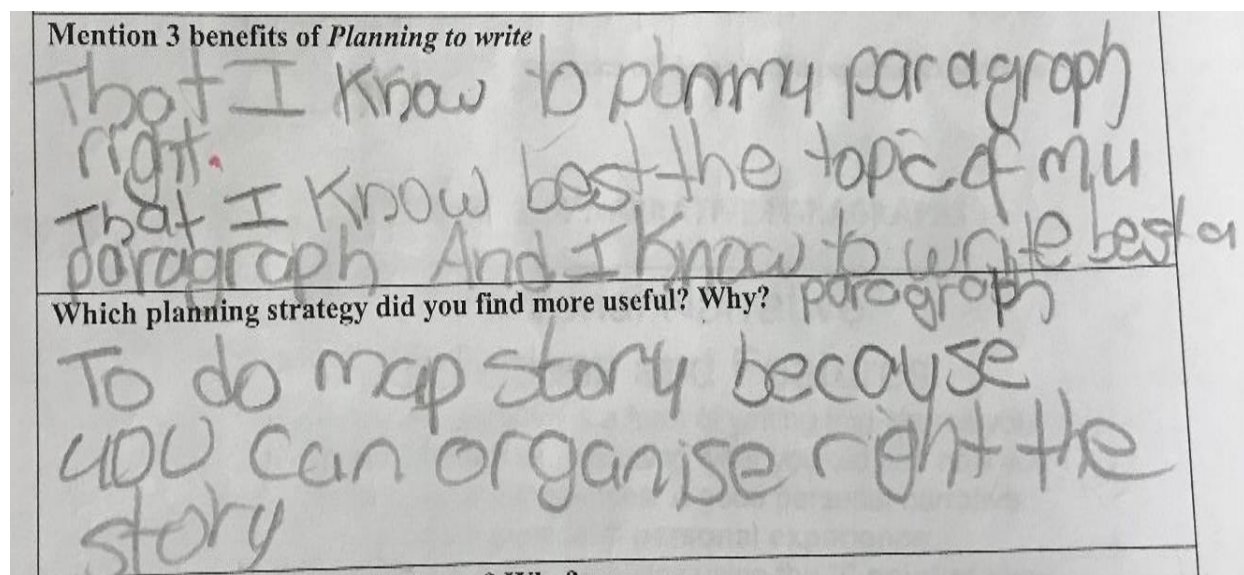 Mention 3 benefits of Planning to write
That I Know to planmy paragraph
right.
That I Know best the topic of my
paragraph And I Know to write best a
paragraph
Which planning strategy did you find more useful? Why?
To do map story because
you can organise right the
story